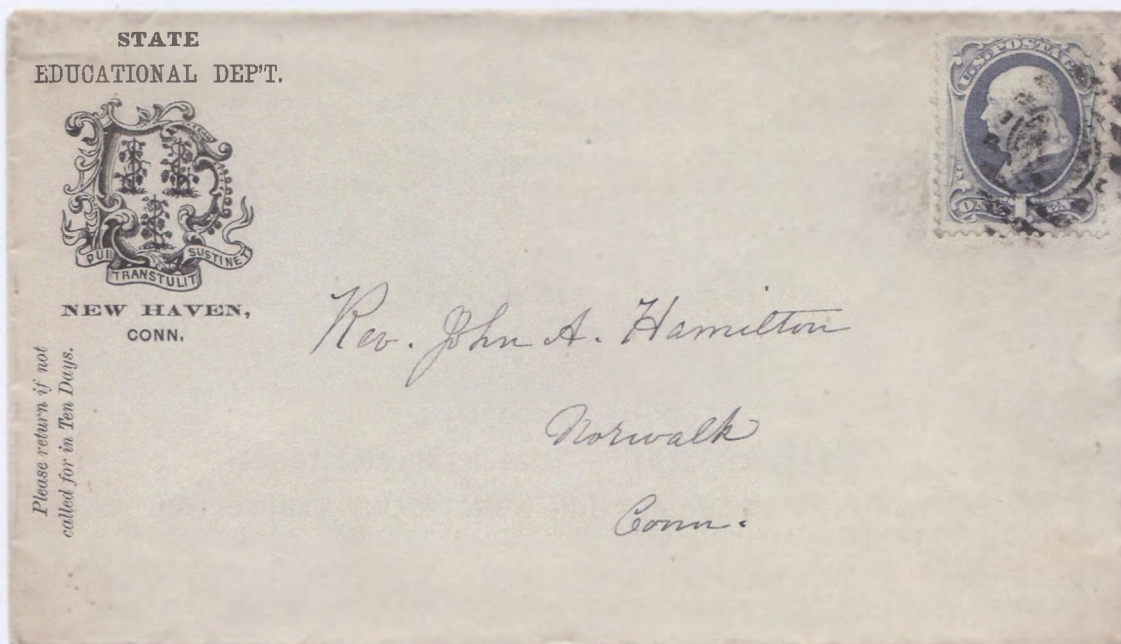 STATE
EDUCATIONAL DEP'T.
QUI TRANSTULIT SUSTINET
NEW HAVEN,
CONN.
Please return if not
called for in Ten Days.
U.S. POSTAGE
Rev. John A. Hamilton
Norwalk
Conn.